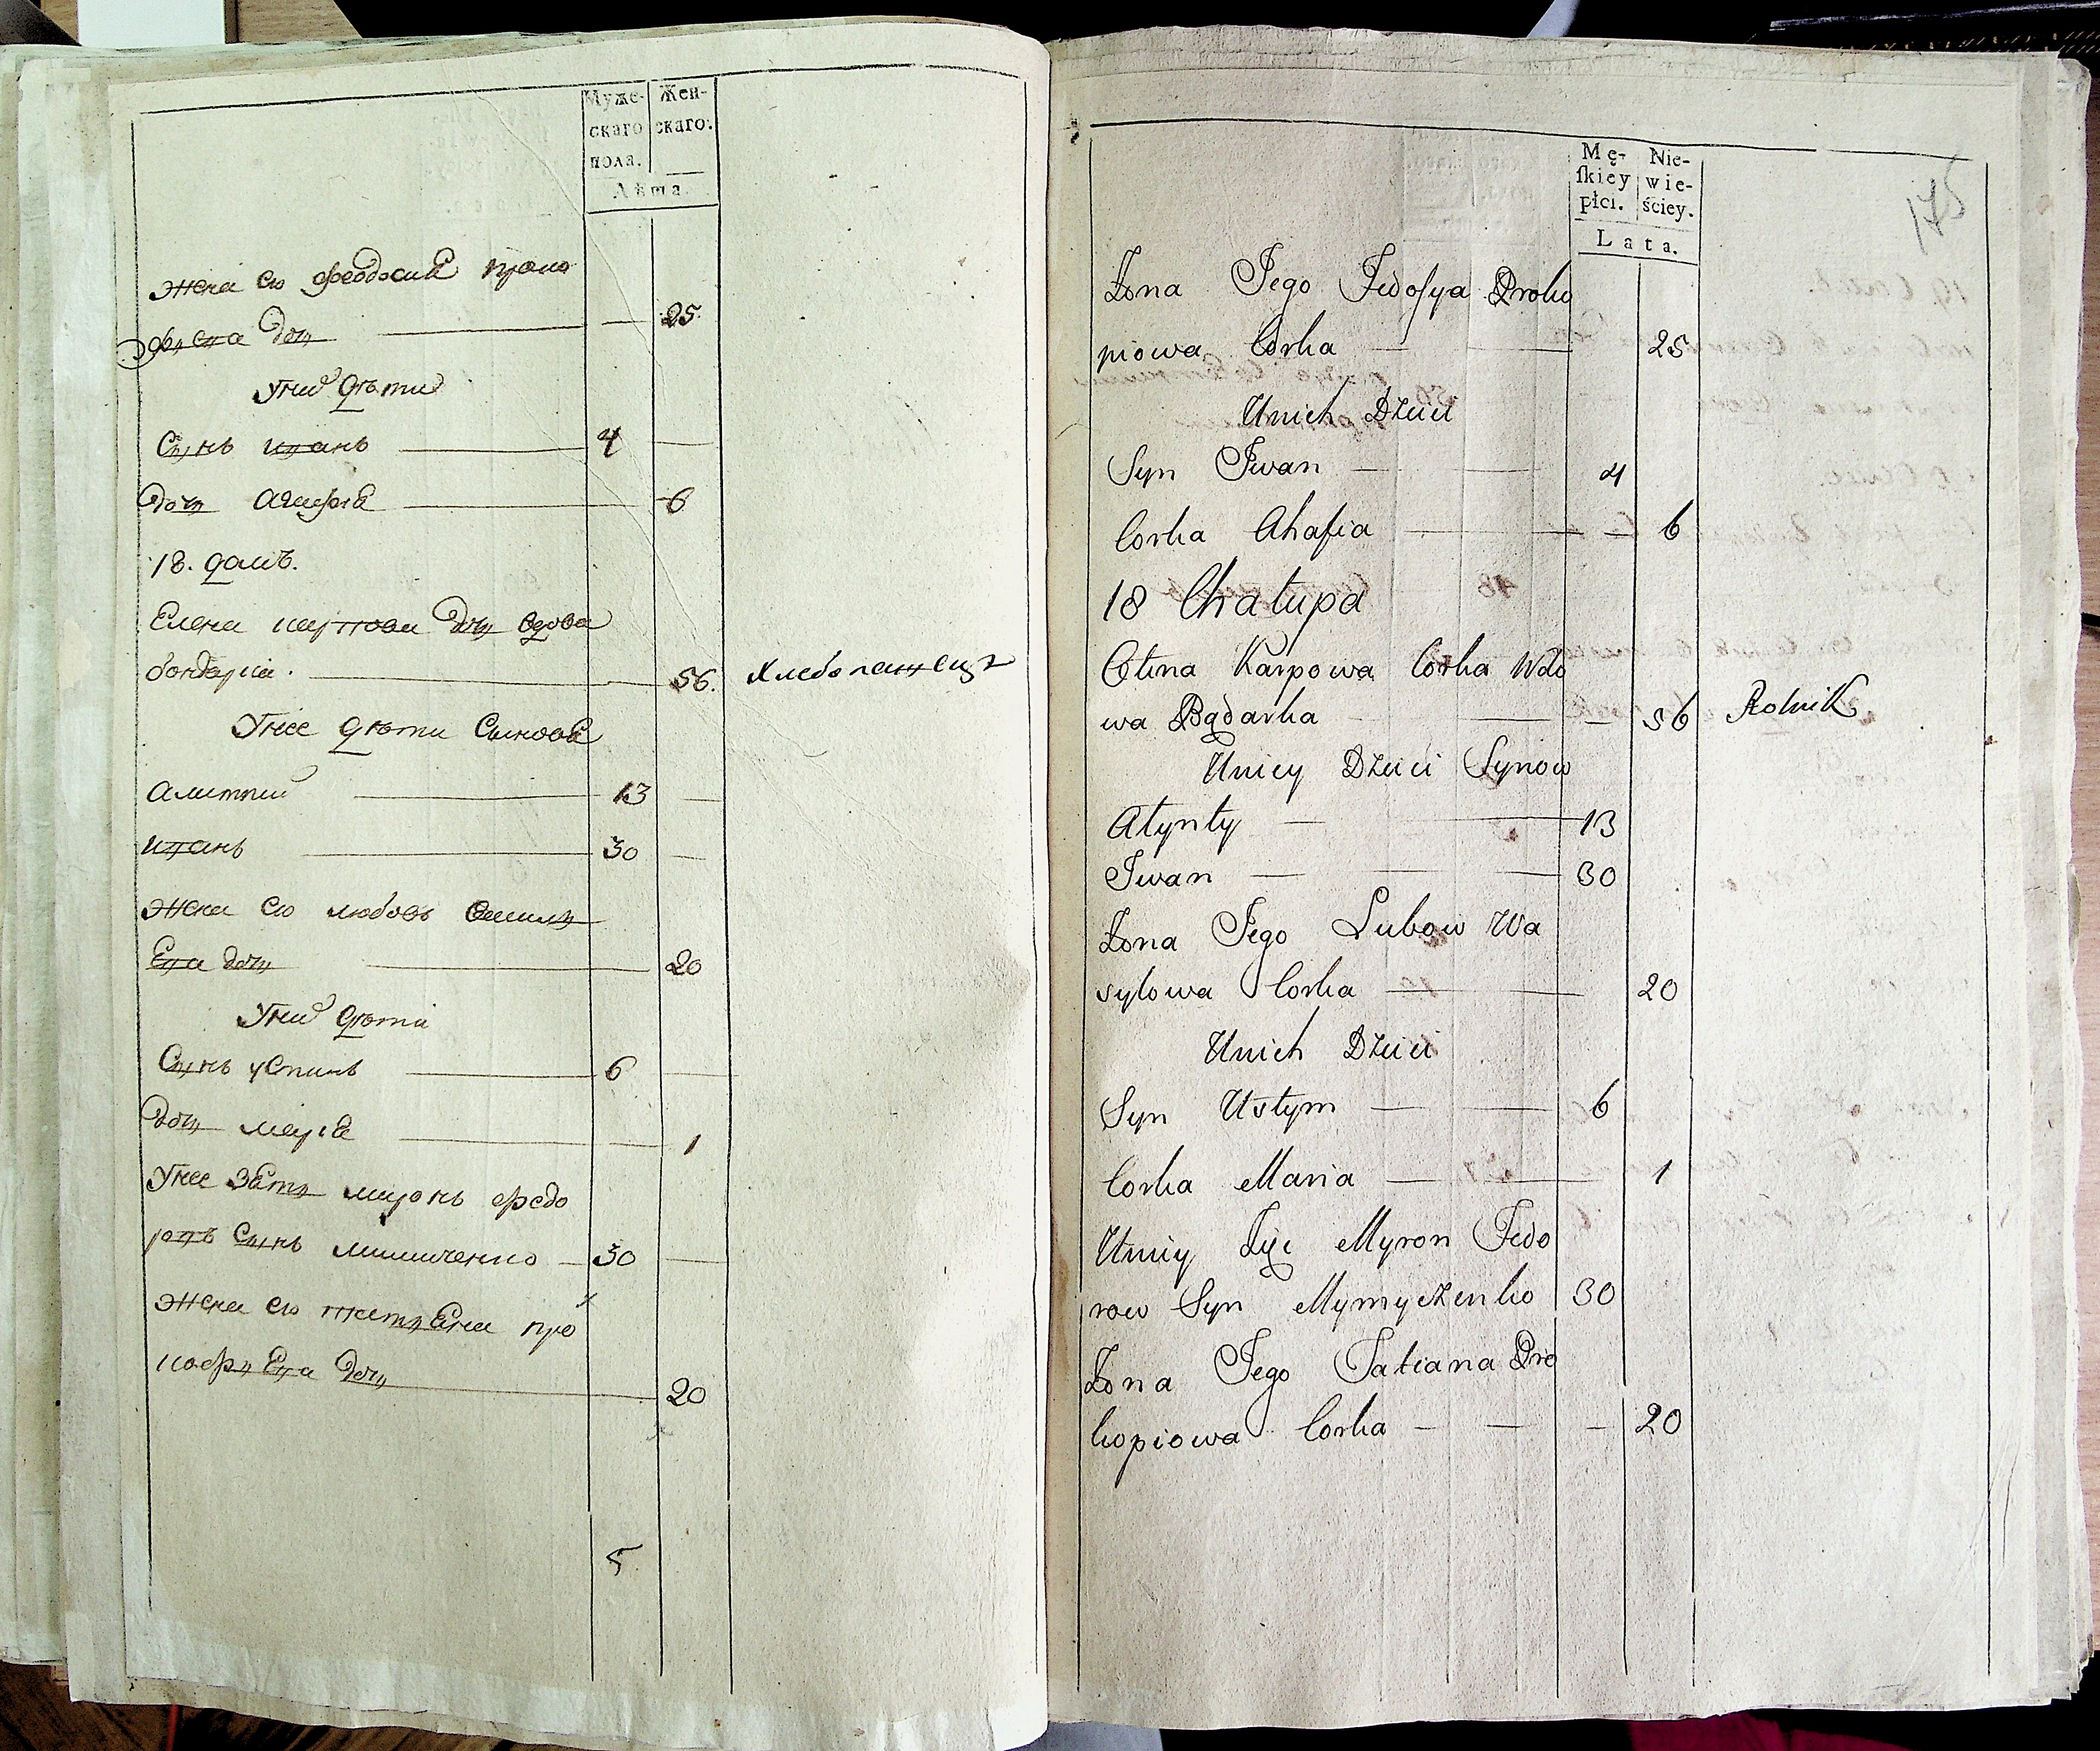 Муже-
скаго
пола.
Жен-
скаго.
Лѣта.
жена ею феодосия проко
фьева дочь 25
у них дѣти
Сынъ иванъ 4
дочь агафия 6
18. домъ.
Елена карпова дочь вдова
бондарка. 56. хлебопашецъ
у нее дѣти Сыновя
алимпий 13
иванъ 30
жена ею любовь василь
Ева дочь 20
у них дѣти
Сынъ устинъ 6
дочь мария 1
у нее зять миронъ федо
ровъ Сынъ мимиченко 30
жена ею татьяна про
кофьева дочь 20
5
Mę-
skiey
płci.
Nie-
wie-
ściey.
Lata.
Żona Jego Fedosya Proko
piowa Corka 25
Unich Dzieci
Syn Jwan 4
Corka Ahafia 6
18 Chałupa
Ołena Karpowa Corka Wdo
wa Bądarka 56 Rolnik
Uniey Dzieci Synow
Ałynty 13
Jwan 30
Żona Jego Lubow Wa
syłowa Corka 20
Unich Dzieci
Syn Ustym 6
Corka Maria 1
Uniey Zięć Myron Fedo
row Syn Mymyczenko 30
Żona Jego Tatiana Pro
kopiowa Corka 20